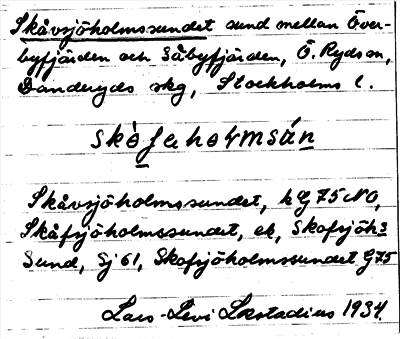 Skåvsjöholmssundet sund mellan Över-
byfjärden och Säbyfjärden, Ö. Ryds sn,
Danderyds skg, Stockholms l.
Skåvsjöholmssundet, k G 75 NO,
Skåfsjöholmssundet, ek, Skofsjöhs
Sund, Sj 61, Skofsjöholmssundet G 75
Lars-Levi Læstadius 1934.